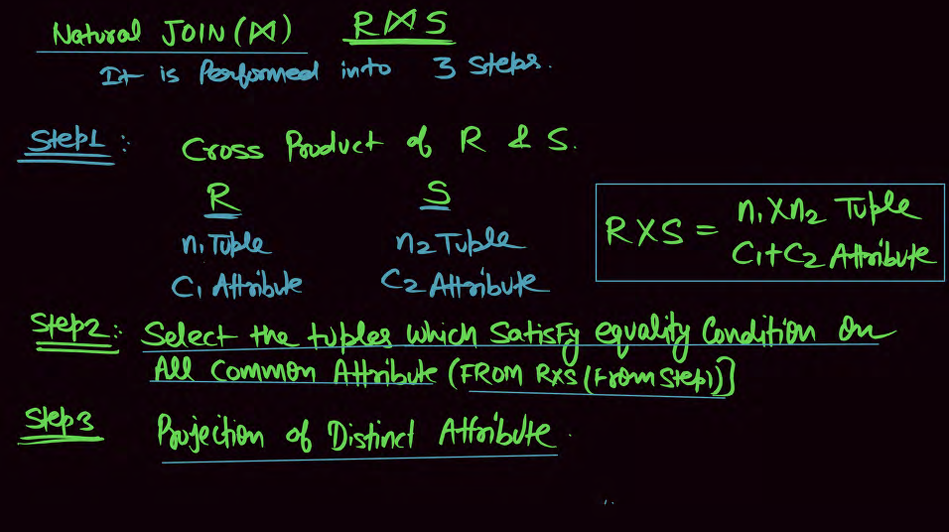 Natural JOIN (⋈) R⋈S
It is Performed into 3 Steps.
Step1 : Cross Product of R & S.
R S
n1 Tuple n2 Tuple
C1 Attribute C2 Attribute
R X S = n1 X n2 Tuple
C1 + C2 Attribute
Step2 : Select the tuples which Satisfy equality Condition on
All Common Attribute (FROM RXS (From Step1)]
Step3 Projection of Distinct Attribute.